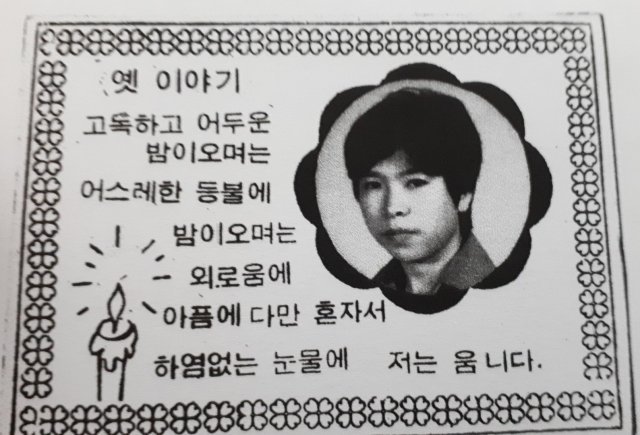 옛 이야기
고독하고 어두운
밤이오며는
어스레한 등불에
밤이오며는
외로움에
아픔에 다만 혼자서
하염없는 눈물에 저는 움니다.